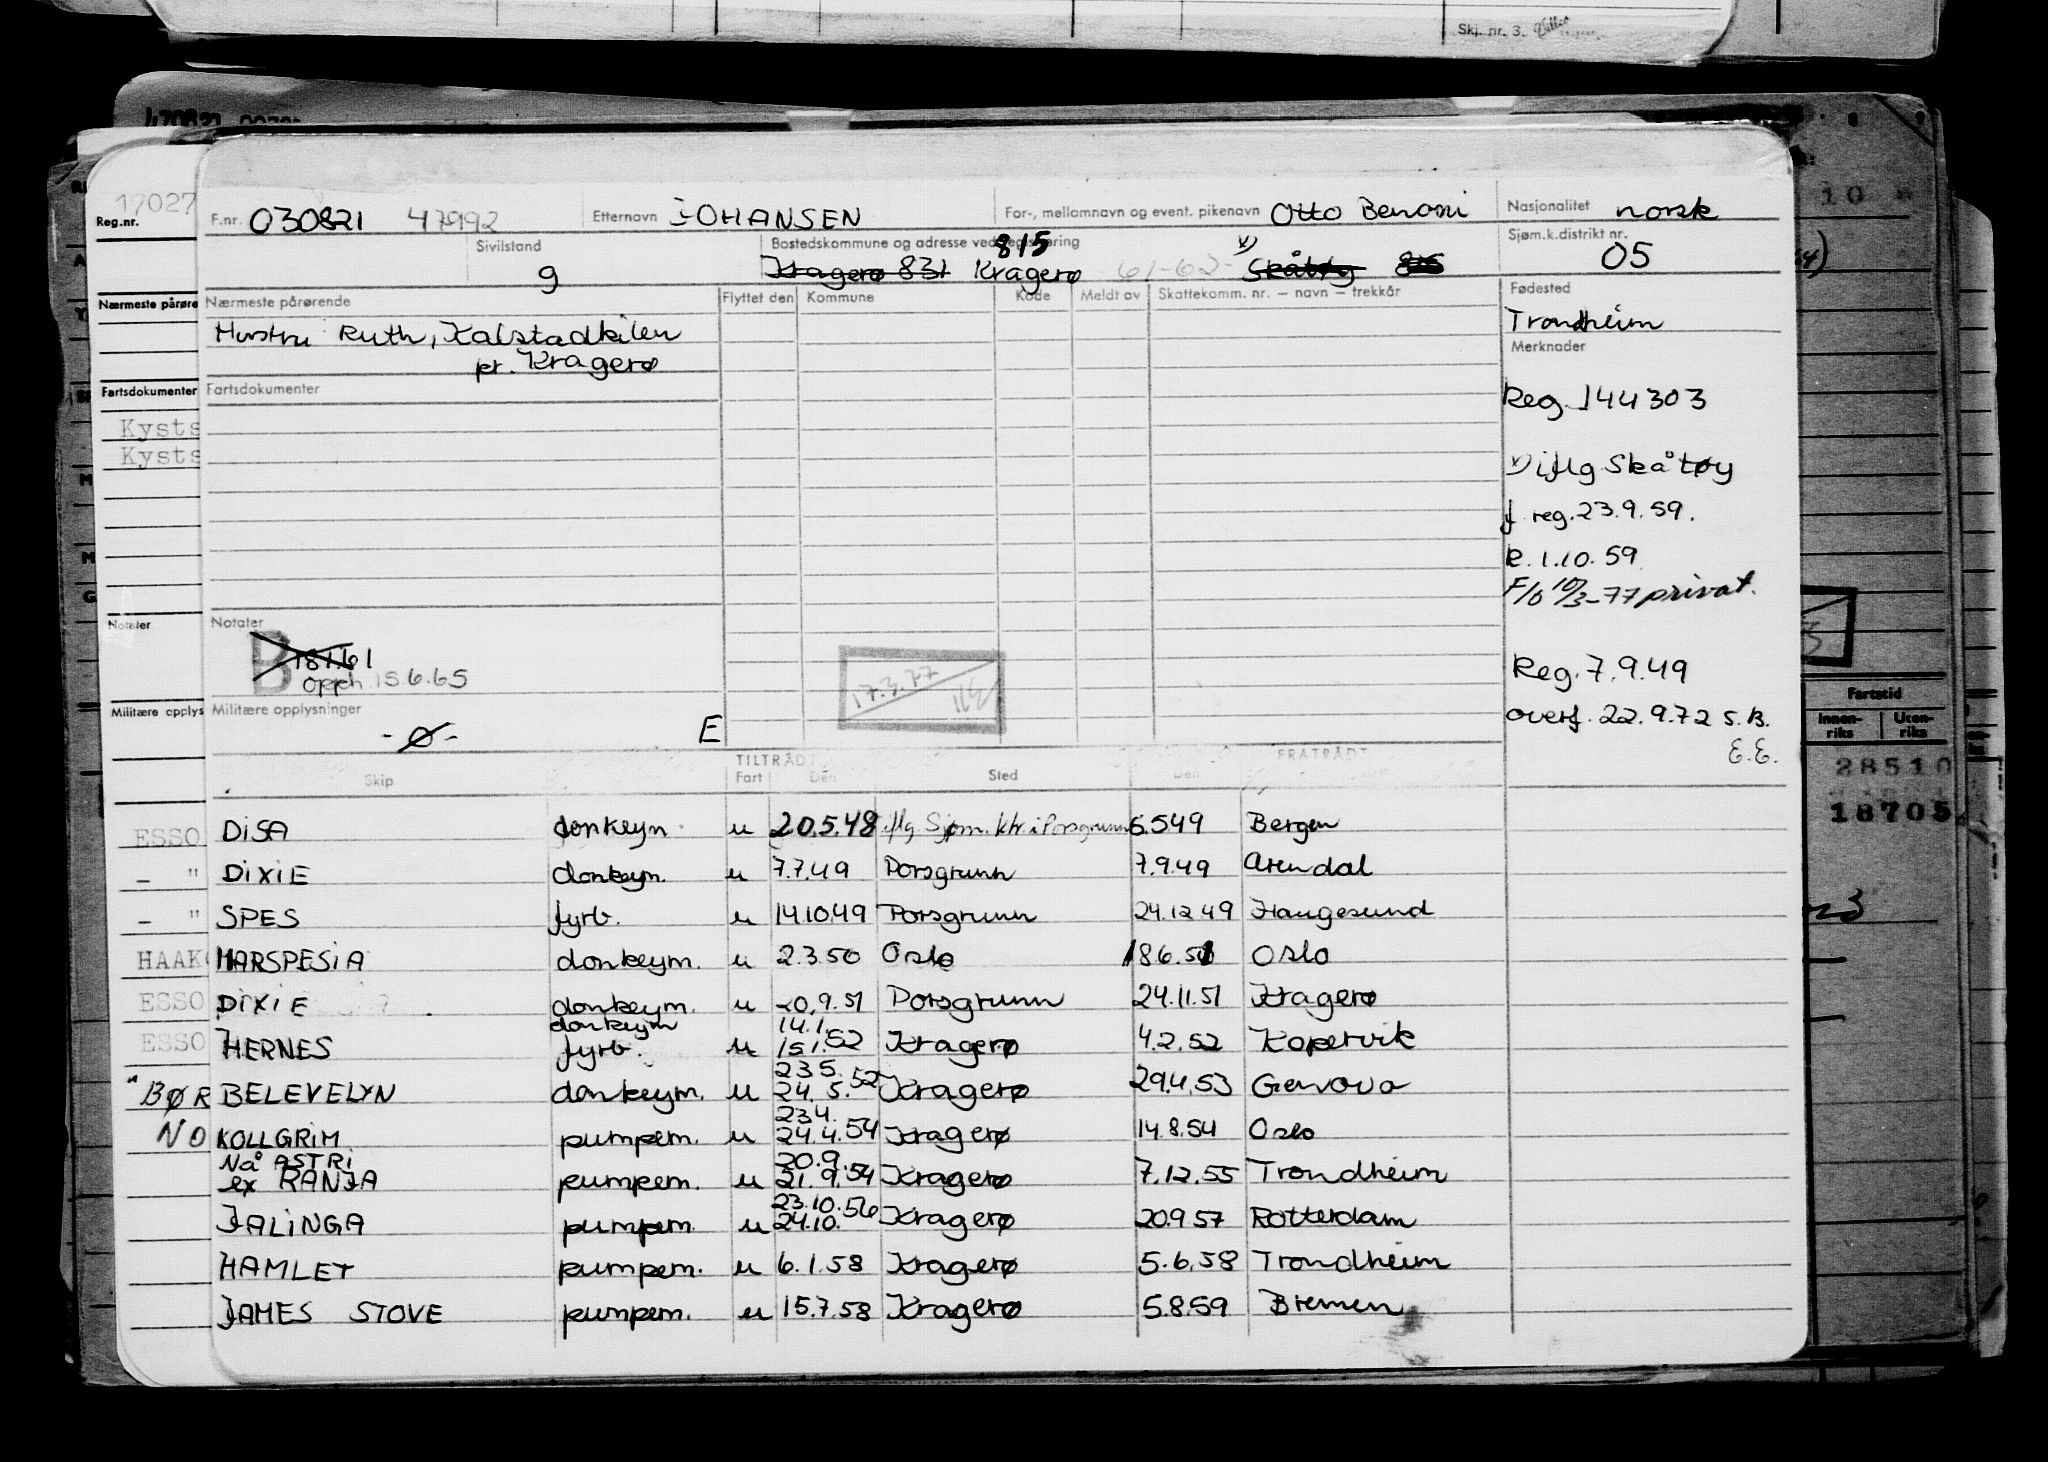 Skj. nr. 3.
Reg.nr.
17027
F.nr. 030821 47992 Etternavn JOHANSEN For-, mellomnavn og event. pikenavn Otto Benoni Nasjonalitet norsk
Sivilstand g
Bostedskommune og adresse ved registrering 815
Kragerø 831 Kragerø 61-62- 1) Skåtøy
Sjøm.k.distrikt nr. 05
Nærmeste pårørende Flyttet den Kommune Kode Meldt av Skattekomm. nr. – navn – trekkår Fødested
Hustru Ruth, Kalstadkilen
pr. Kragerø
Trondheim
Merknader
Fartsdokumenter Fartsdokumenter
Kysts
Kysts
Reg. 144303
1) iflg Skåtøy
f reg. 23.9.59.
k. 1.10.59
F/o 10/3-77 privat.
Notater Notater
B 18.1.61
opph 15.6.65
17.3.77
Reg. 7.9.49
overf. 22.9.72 S.B.
E.E.
Militære opplys Militære opplysninger
-Ø- E
TILTRÅDT FRATRÅDT
Skip Fart Den Sted Den
DISA donkeym u 20.5.48 iflg Sjøm.ktr. i Porsgrunn 6.549 Bergen
DIXIE donkeym. u 7.7.49 Porsgrunn 7.9.49 Arendal
SPES fyrb. u 14.10.49 Porsgrunn 24.12.49 Haugesund
MARSPESIA donkeym. u 2.3.50 Oslo 186.51 Oslo
DIXIE donkeym. u 20.9.51 Porsgrunn 24.11.51 Kragerø
donkeym 14.1.
HERNES fyrb. u 15.1.52 Kragerø 4.2.52 Kopervik
23.5.
BELEVELYN donkeym. u 24.5.52 Kragerø 29.4.53 Genova
23.4.
KOLLGRIM pumpem. u 24.4.54 Kragerø 14.8.54 Oslo
Nå ASTRI 20.9.
ex RANJA pumpem. u 21.9.54 Kragerø 7.12.55 Trondheim
23.10.56
JALINGA pumpem u 24.10. Kragerø 20.9.57 Rotterdam
HAMLET pumpem. u 6.1.58 Kragerø 5.6.58 Trondheim
JAMES STOVE pumpem. u 15.7.58 Kragerø 5.8.59 Bremen
ESSO
– "
– "
HAAK
ESSO
ESSO
BØR
NO
Fartstid
Innen-
riks
Uten-
riks
28510
18705